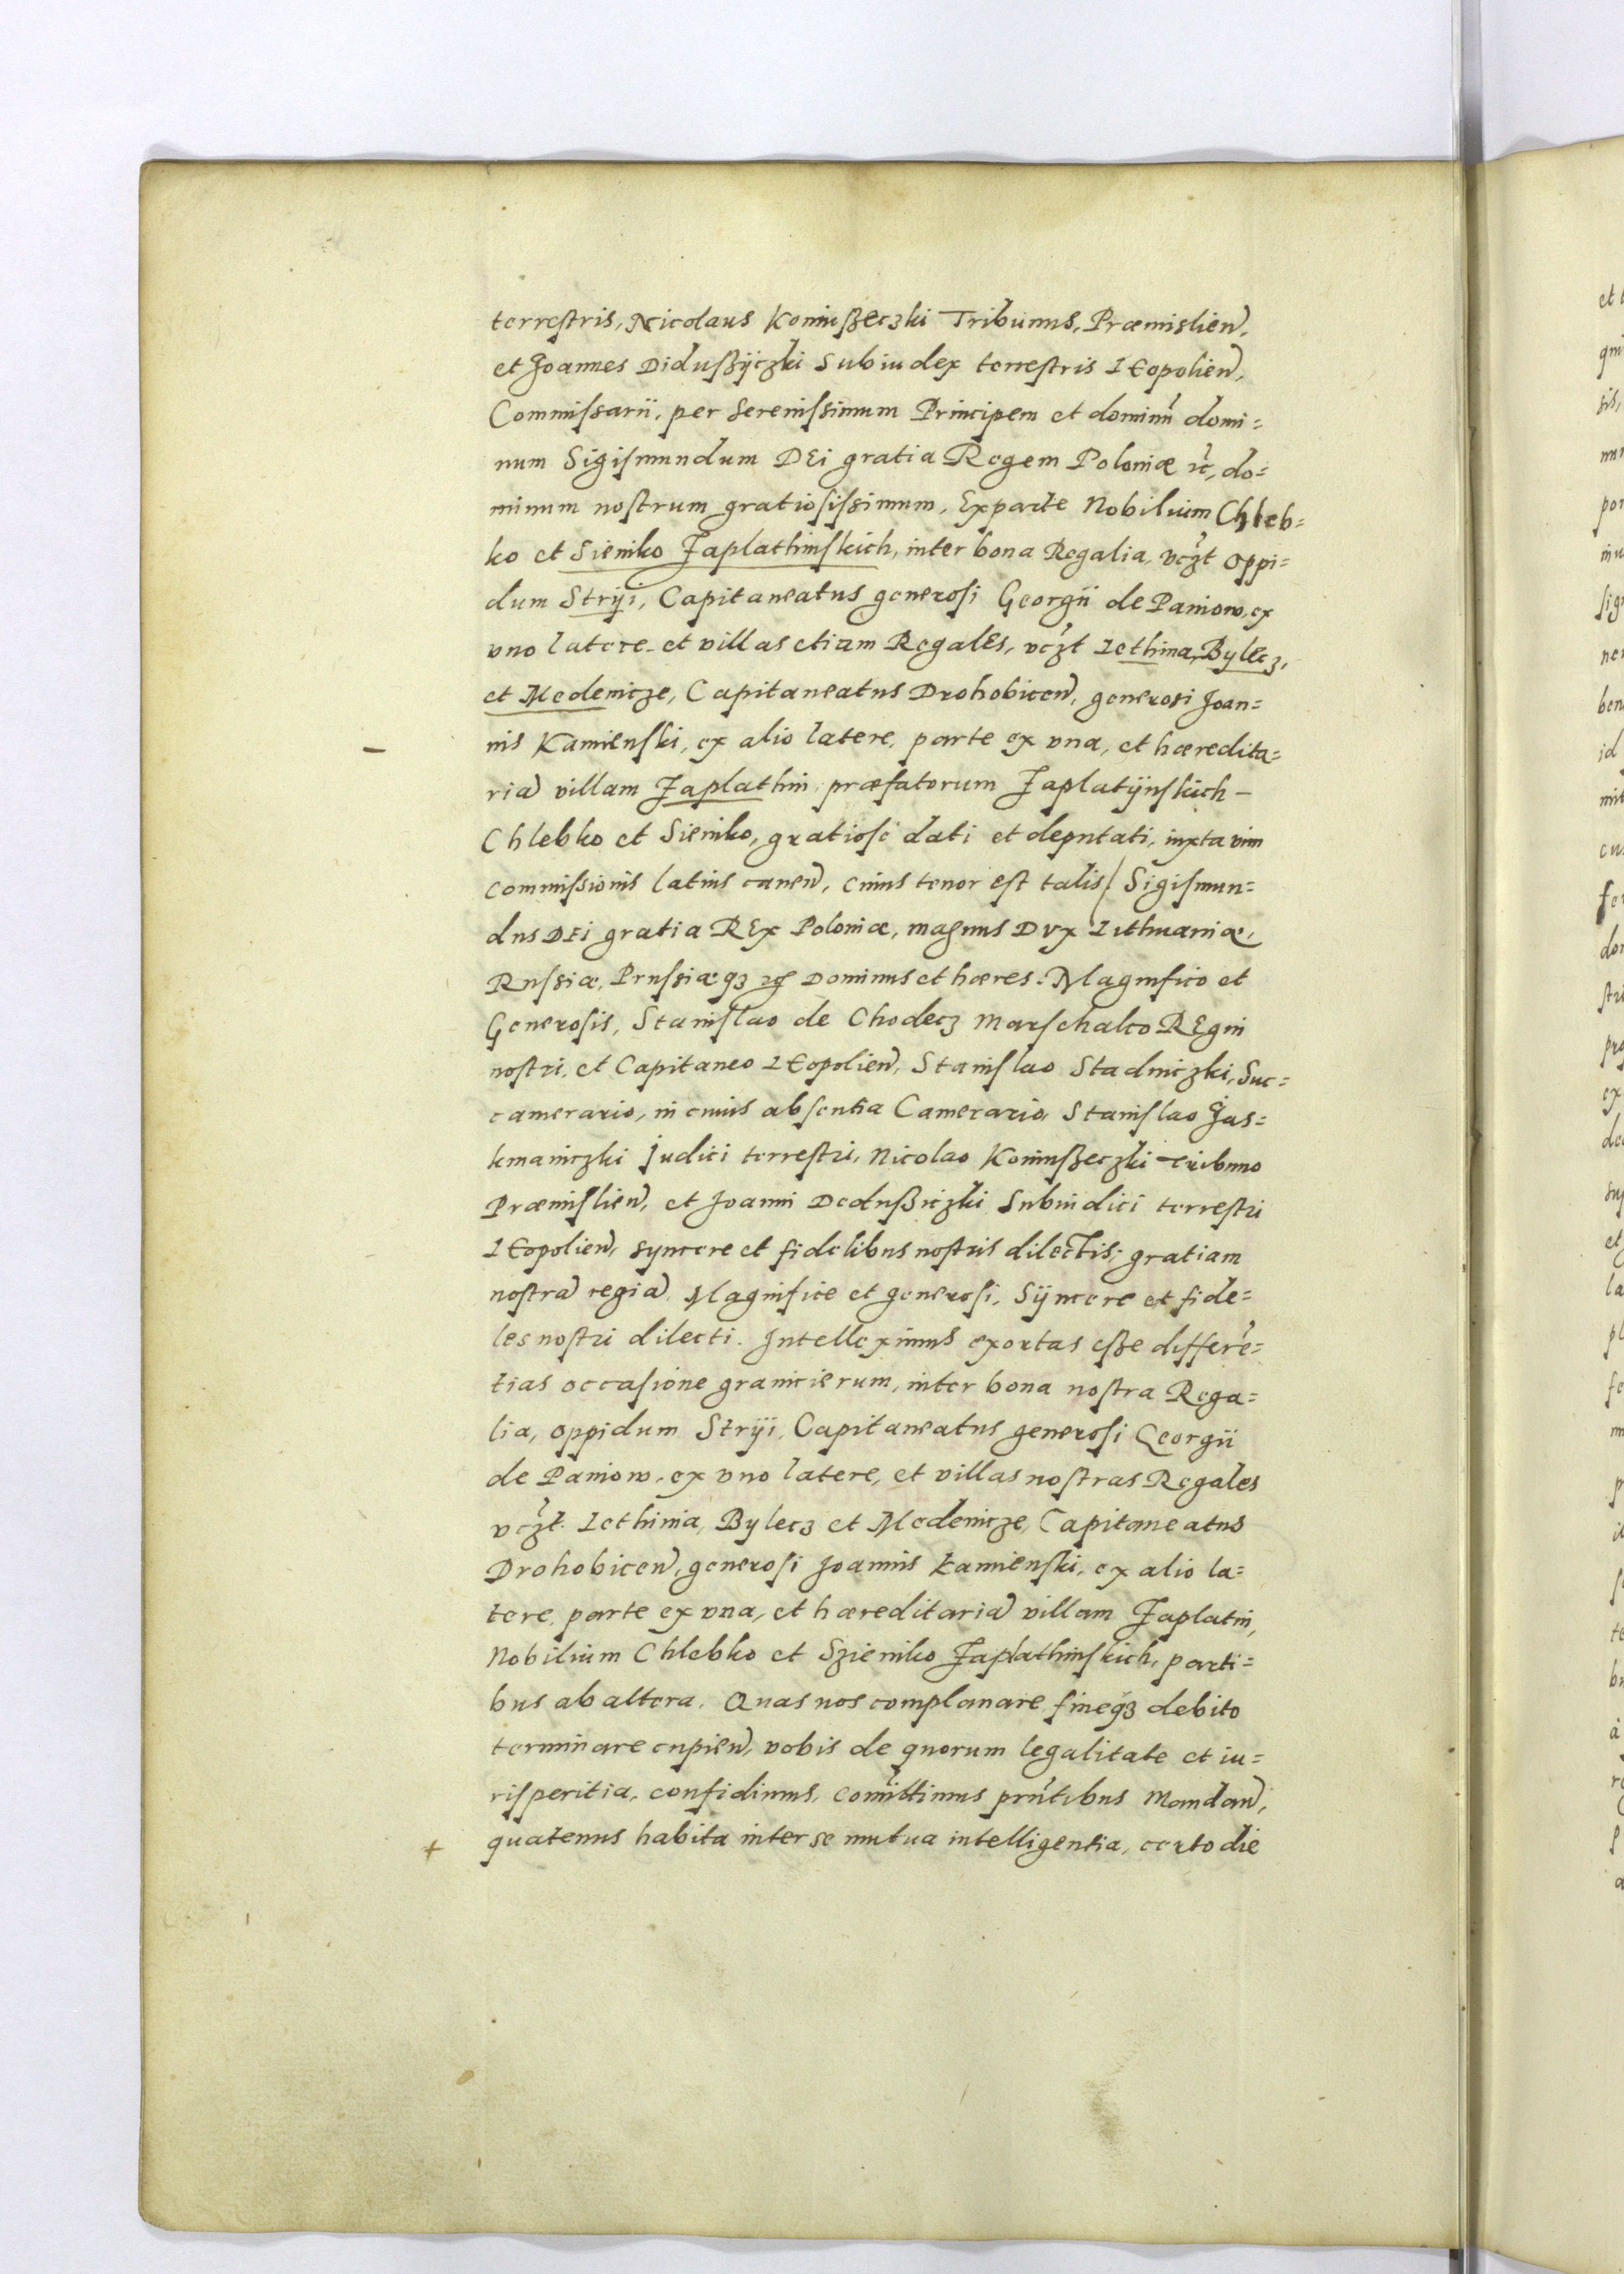 terrestris, Nicolaus Koniusßeczki Tribunus, Præmislień,
et Joannes Didußÿczki Subiudex terrestris LEopolień,
Commissarii, per Serenissimum Principem et dominũ domi=
num Sigismundum DEi gratia Regem Poloniæ ꝛc, do=
minum nostrum gratiosissimum, Ex parte Nobilium Chleb=
ko et Sieniko Zaplathinskich, inter bona Regalia, vczt oppi=
dum Strÿi, Capitaneatus generosi Georgii de Paniow, ex
vno latere et villas etiam RegalEs, vczt Lethina, Bylecz,
et Medenicze, Capitaneatus Drohobiceń, generosi Joan=
nis Kamienski, ex alio latere, parte ex vna, et hæredita=
riã villam Zaplathin, præfatorum Zaplatÿnskich –
Chlebko et Sieniko, gratiose dati et deputati, iuxta vim
commissionis latius caneń, cuius tenor est talis / Sigismun=
dus DEi gratia REx Poloniæ, magnus Dvx Lithuaniæ,
Russiæ, Prussiæqꝫ ꝛc Dominus et hæres: Magnifico et
Generosis, Stanislao de Chodecz Marschalco REgni
nostri, et Capitaneo LEopolień, Stanislao Stadniczki, Suc=
camerario, in cuius absentia Camerario, Stanislao Jas=
kmaniczki Judici terrestri, Nicolao Koniusßeczki Tribuno
Præmislień, et Joanni Dedußiczki Subiudici terrestri
LEopolień, syncere et fidelibus nostris dilectis, gratiam
nostrã regiã. Magnifice et generosi, Sÿncere et fide=
les nostri dilecti. Intelleximus exortas eße differẽ=
tias occasione granicierum, inter bona nostra Rega=
lia, oppidum Strÿi, Capitaneatus generosi Georgii
de Paniow, ex vno latere, et villas nostras Regales
vczt. Lethinia, Bylecz et Medenicze, Capitaneatus
Drohobiceń, generosi Joannis Kamienski, ex alio la=
tere, parte ex vna, et hæreditariã villam Zaplatin,
Nobilium Chlebko et Szieniko Zaplathinskich, parti=
bus ab altera. Quas nos complanare fineqꝫ debito
terminare cupień, vobis de quorum legalitate et iu=
risperitia, confidimus, com̃ittimus prñtibus Mandań,
quatenus habita inter se mutua intelligentia, certo die